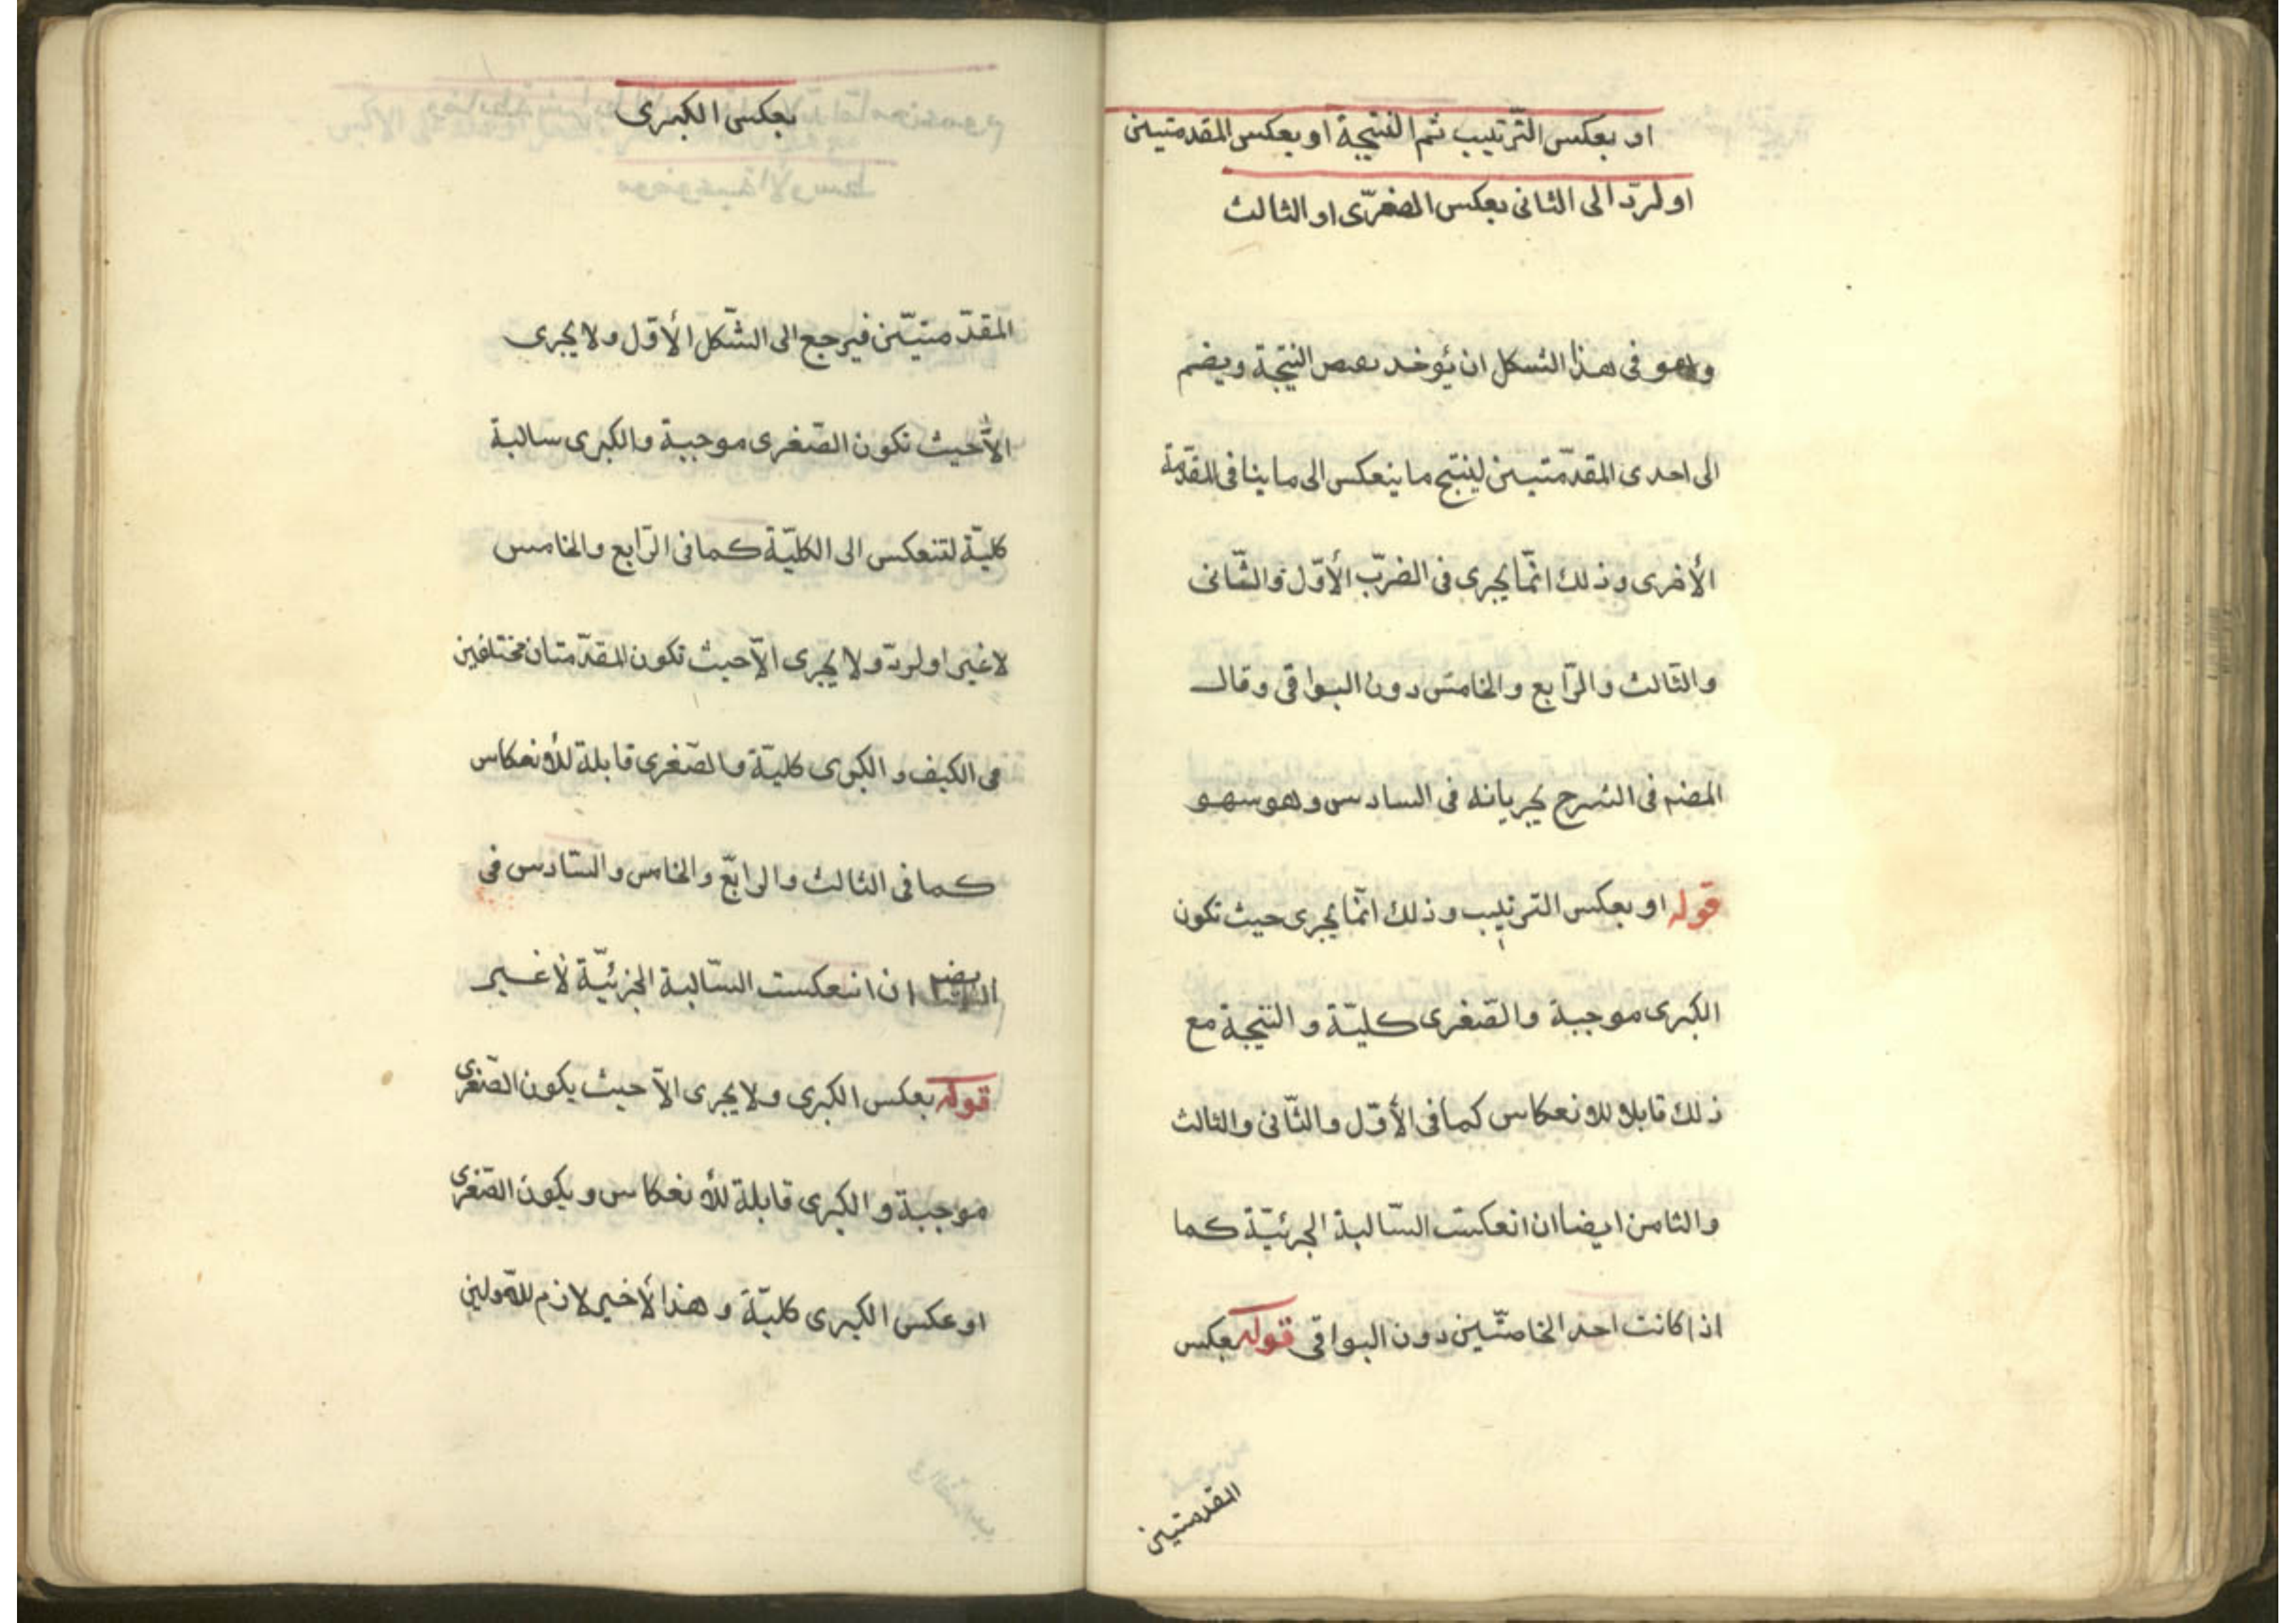 او بعكس الترتيب ثم النتيجة او بعكس المقدمتين
او لردّ الى الثانى بعكس الصغرّى او الثالث
وهو فى هذا الشكل ان يؤخد نقيص النتيجة ويضم
الى احدى المقدّمتيين لينتج ما ينعكس الى ما ينافى المقدّمة
الأخرى وذلك انّما يجرى فى الضربّ الأوّل والثّانى
والثّالث والرّابع والخامس دون البواقى وقال
المصنم فى الشرح بجريانه فى السادس وهو سهو
قوله او بعكس الترتيب وذلك انّما يجرى حيث تكون
الكبرى موجبة والصّغرى كليّة والنتيجة مع
ذلك قابلا للانعكاس كما فى الأوّل والثّانى والثالث
والثامن ايضا ان انعكست السّالبة الجزئيّة كما
اذا كانت احد الخاصّتين دون البواقى قوله بعكس
المقدمتين
بعكس الكبرى
المقدّمتيّن فيرجع الى الشّكل الأوّل ولا يجرى
الاّ حيث تكون الصّغرى موجبة والكبرى سالبة
كليّة لتنعكس الى الكليّة كما فى الرّابع والخامس
لا غير او لردّ ولا يجرى الاّ حيث تكون المقدّمتان مختلفين
فى الكيف والكبرى كليّة والصّغرى قابلة للأنعكاس
كما فى الثالث والرابّع والخامس والسّادس فى
ان انعكست السّالبة الجزئيّة لا غير
قوله بعكس الكبرى ولا يجرى الاّ حيث يكون الصّغرى
موجبة والكبرى قابلة للأنعكاس ويكون الصّغرى
او عكس الكبرى كليّة وهذا لأخير لازم للاّولين